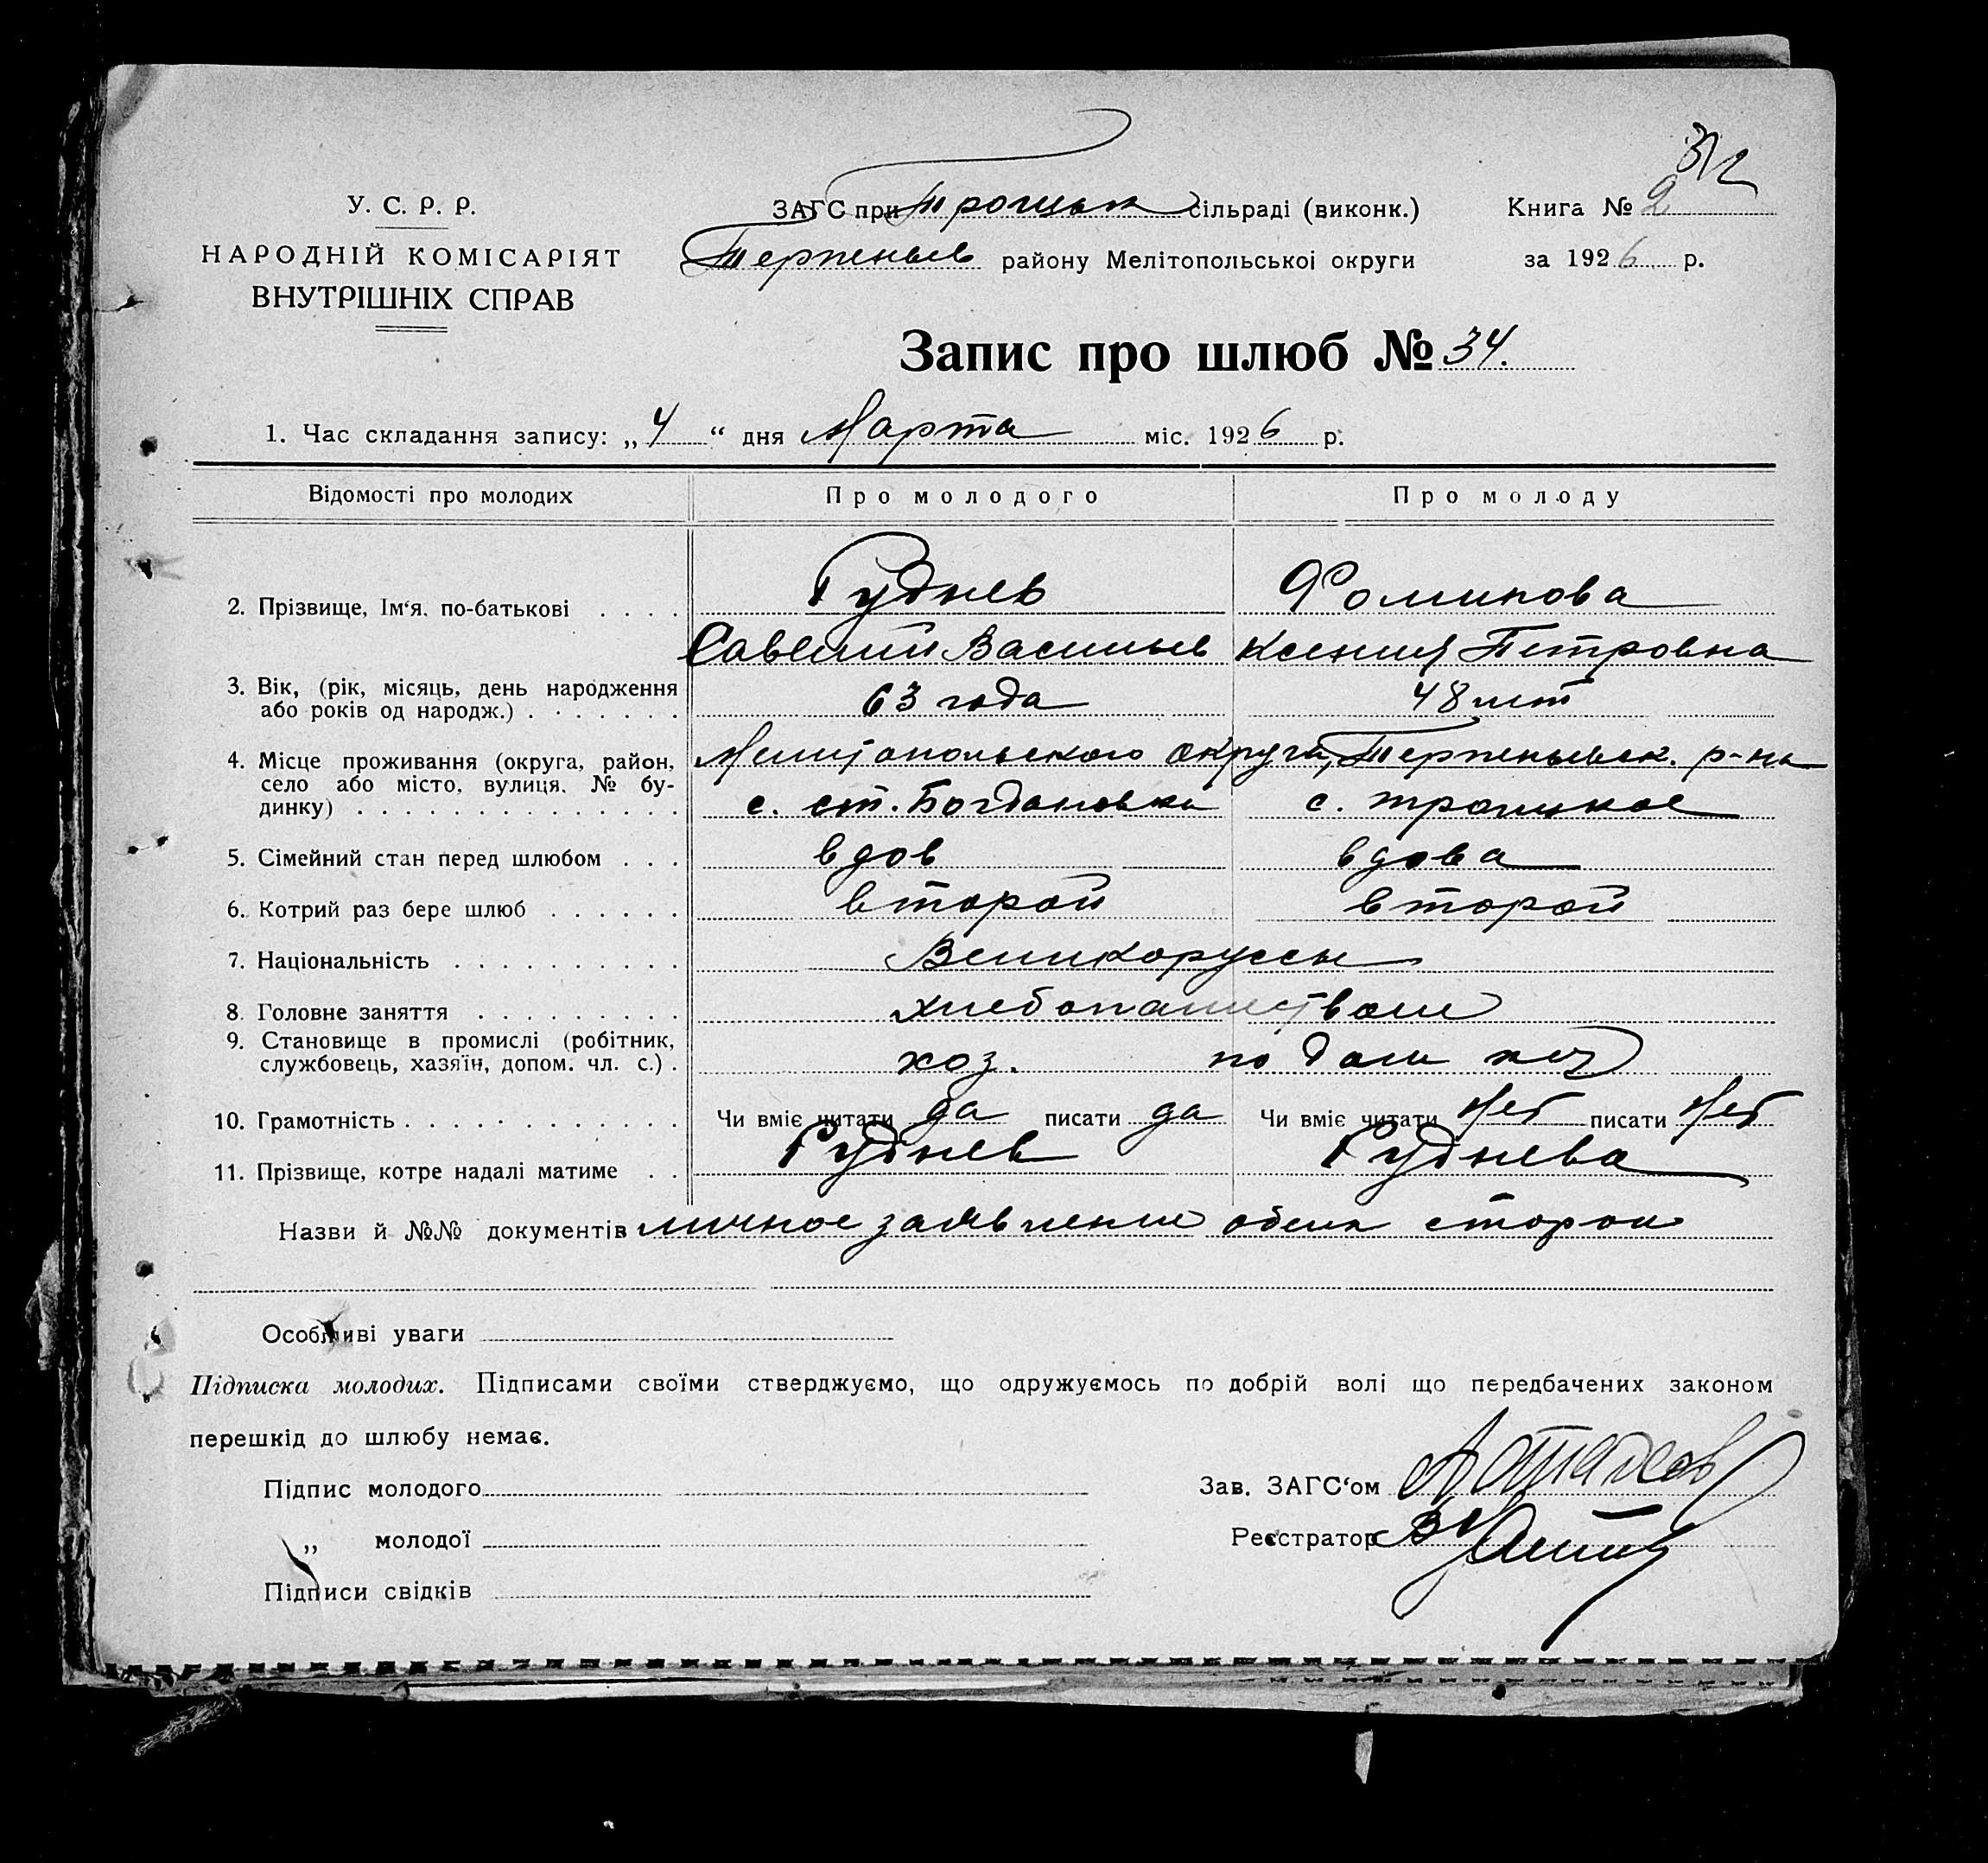 312
У. С. Р. Р.
НАРОДНІЙ КОМІСАРІЯТ
ВНУТРІШНІХ СПРАВ
ЗАГС при Троицьк сільраді (виконк.)
Терпеньев району Мелітопольської округи
Книга № 2
за 1926 р.
Запис про шлюб № 34.
1. Час складання запису: „4“ дня Марта міс. 1926 р.
Відомості про молодих Про молодого Про молоду
2. Прізвище, Ім‘я, по-батькові . . . . Руднев Фоминова
Савелий Васильев Ксения Петровна
3. Вік, (рік, місяць, день народження
або років од народж.) . . . . . . . 63 года 48 лет
4. Місце проживання (округа, район, Мелитопольского округа, Терпеньевск. р-на
село або місто, вулиця, № бу-
динку) . . . . . . . . . . . . . . с. ст. Богдановка с. Троицкое
5. Сімейний стан перед шлюбом . . . вдов вдова
6. Котрий раз бере шлюб . . . . . . второй второй
7. Національність . . . . . . . . . . Великоруссы
8. Головне заняття . . . . . . . . . хлебопашеством
9. Становище в промислі (робітник,
службовець, хазяїн, допом. чл. с.) . хоз. по дом
10. Грамотність . . . . . . . . . . . . Чи вміє читати да писати да Чи вміє читати Нет писати Нет
11. Прізвище, котре надалі матиме . . Руднев Руднева
Назви й №№ документів личное заявление обеих сторон
Особливі уваги
Підписка молодих. Підписами своїми стверджуємо, що одружуємось по добрій волі що передбачених законом
перешкід до шлюбу немає.
Підпис молодого
Зав. ЗАГС‘ом
„ молодої
Реєстратор
Підписи свідків